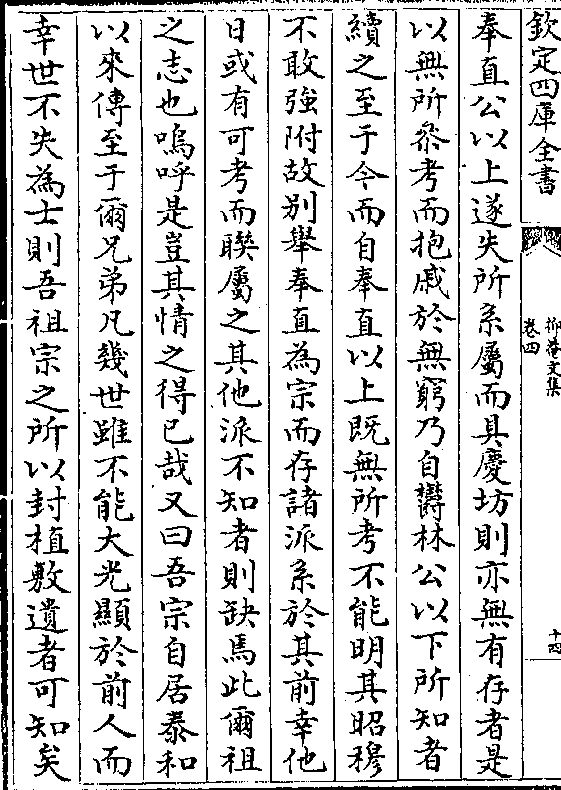 欽定四庫全書
抑菴文集
卷四
十四
奉直公以上遂失所系屬而具慶坊則亦無有存者是
以無所叅考而抱戚於無窮乃自欝林公以下所知者
續之至于今而自奉直以上既無所考不能明其昭穆
不敢強附故别舉奉直為宗而存諸派系於其前幸他
日或有可考而聨屬之其他派不知者則缺焉此爾祖
之志也嗚呼是豈其情之得已哉又曰吾宗自居泰和
以來傳至于爾兄弟凡幾世雖不能大光顯於前人而
幸世不失為士則吾祖宗之所以封植敷遺者可知矣